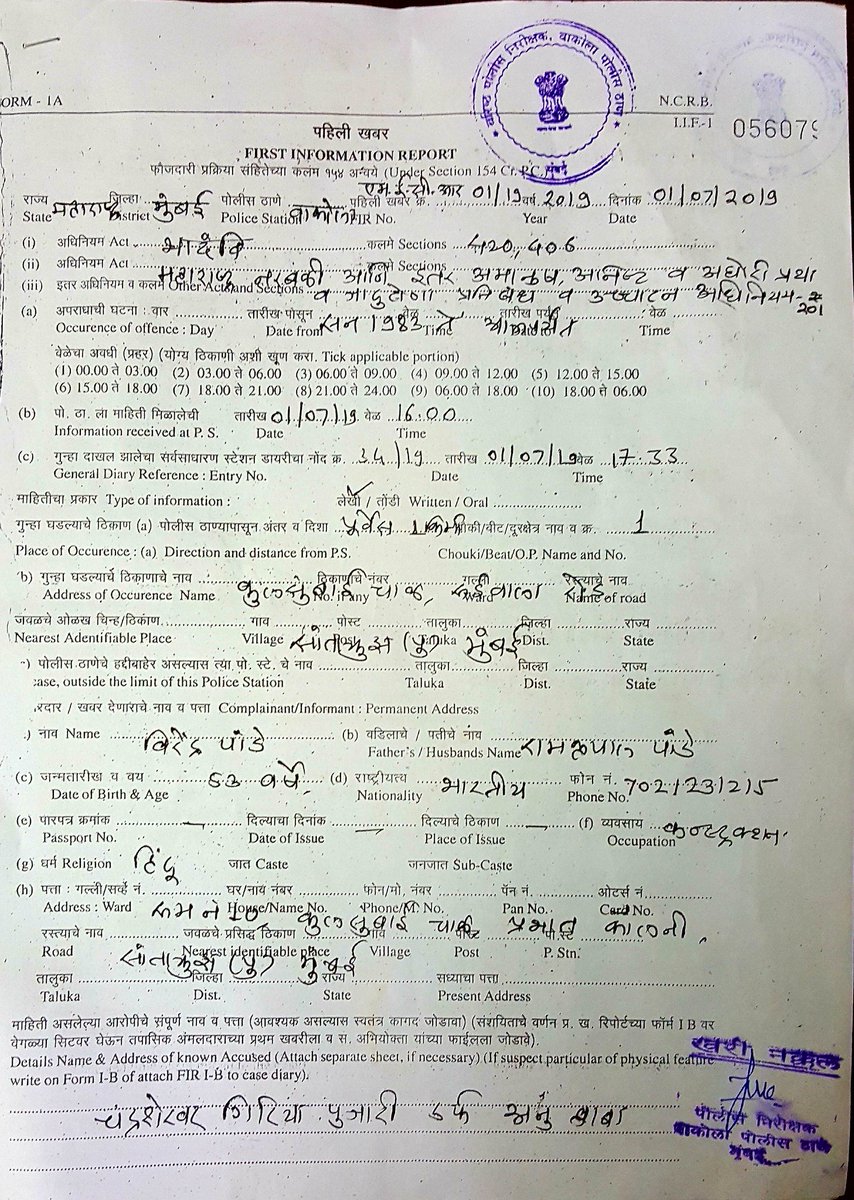 वरिष्ठ पोलीस निरीक्षक, वाकोला पोलीस ठाणे
मुंबई
ORM - 1A
N.C.R.B.
I.I.F.-1
056079
पहिली खबर
FIRST INFORMATION REPORT
फौजदारी प्रक्रिया संहितेच्या कलम १५४ अन्वये (Under Section 154 Cr. P.C.)
एम.ई.सी.आर
राज्य महाराष्ट्र जिल्हा मुंबई पोलीस ठाणे वाकोला पहिली खबर क्र. 01/19 वर्ष 2019 दिनांक 01/07/2019
State District Police Station FIR No. Year Date
(i) अधिनियम Act भादंवि कलमे Sections 420, 406
(ii) अधिनियम Act कलमे Sections
महाराष्ट्र नरबळी आणि इतर अमानुष, अनिष्ट व अघोरी प्रथा
(iii) इतर अधिनियम व कलमे Other Acts and Sections व जादुटोणा प्रतिबंध व उच्चाटन अधिनियम- 201
(a) अपराधाची घटना : वार तारीख पासून वेळ तारीख पर्यंत वेळ
Occurence of offence : Day Date from सन 1983 ते Time Time
वेळेचा अवधी (प्रहर) (योग्य ठिकाणी अशी खूण करा. Tick applicable portion)
(1) 00.00 ते 03.00 (2) 03.00 ते 06.00 (3) 06.00 ते 09.00 (4) 09.00 ते 12.00 (5) 12.00 ते 15.00
(6) 15.00 ते 18.00 (7) 18.00 ते 21.00 (8) 21.00 ते 24.00 (9) 06.00 ते 18.00 (10) 18.00 ते 06.00
(b) पो. ठा. ला माहिती मिळालेची तारीख 01/07/19 वेळ 16.00
Information received at P. S. Date Time
(c) गुन्हा दाखल झालेचा सर्वसाधारण स्टेशन डायरीचा नोंद क्र. 34/19 तारीख 01/07/19 वेळ 17.33
General Diary Reference : Entry No. Date Time
माहितीचा प्रकार Type of information : लेखी / तोंडी Written / Oral
गुन्हा घडल्याचे ठिकाण (a) पोलीस ठाण्यापासून अंतर व दिशा पूर्वेस 1 किमी चौकी/बीट/दूरक्षेत्र नाव व क्र. 1
Place of Occurence : (a) Direction and distance from P.S. Chouki/Beat/O.P. Name and No.
b) गुन्हा घडल्याचे ठिकाणाचे नाव ठिकाणाचे नंबर गल्ली रस्त्याचे नाव
Address of Occurence Name कुलसुबाई चाळ, No. if any Ward Name of road
जवळचे ओळख चिन्ह/ठिकाण गाव पोस्ट तालुका जिल्हा राज्य
Nearest Adentifiable Place Village सांताक्रुझ (पु) Taluka मुंबई Dist. State
) पोलीस ठाणेचे हद्दीबाहेर असल्यास त्या पो. स्टे. चे नाव तालुका जिल्हा राज्य
case, outside the limit of this Police Station Taluka Dist. State
रदार / खबर देणाराचे नाव व पत्ता Complainant/Informant : Permanent Address
) नाव Name विरेंद्र पांडे (b) वडिलाचे / पतीचे नाव
Father's / Husbands Name रामकृपाल पांडे
(c) जन्मतारीख व वय 53 वर्षे (d) राष्ट्रीयत्त्व भारतीय फोन नं. 7021231215
Date of Birth & Age Nationality Phone No.
(e) पारपत्र क्रमांक दिल्याचा दिनांक दिल्याचे ठिकाण (f) व्यवसाय कन्स्ट्रक्शन
Passport No. Date of Issue Place of Issue Occupation
(g) धर्म Religion हिंदू जात Caste जनजात Sub-Caste
(h) पत्ता : गल्ली/सर्व्हे नं. घर/नाव नंबर फोन/मो. नंबर पॅन नं. ओटर्स नं.
Address : Ward रुम नं House/Name No. Phone/M. No. Pan No. Card No.
रस्त्याचे नाव जवळचे प्रसिद्ध ठिकाण कुलसुबाई चाळ प्रभात कालनी,
Road Nearest identifiable place Village Post P. Stn.
सांताक्रुझ (पु) मुंबई
तालुका जिल्हा राज्य सध्याचा पत्ता
Taluka Dist. State Present Address
माहिती असलेल्या आरोपीचे संपूर्ण नाव व पत्ता (आवश्यक असल्यास स्वतंत्र कागद जोडावा) (संशयिताचे वर्णन प्र. ख. रिपोर्टच्या फॉर्म I B वर
वेगळ्या सिटवर घेऊन तपासिक अंमलदाराच्या प्रथम खबरीला व स. अभियोक्ता यांच्या फाईलला जोडावे).
Details Name & Address of known Accused (Attach separate sheet, if necessary) (If suspect particular of physical feature
write on Form I-B of attach FIR I-B to case diary).
चंद्रशेखर गिरिया पुजारी उर्फ अनु बाबा
खरी नक्कल
पोलीस निरीक्षक
वाकोला पोलीस ठाणे
मुंबई